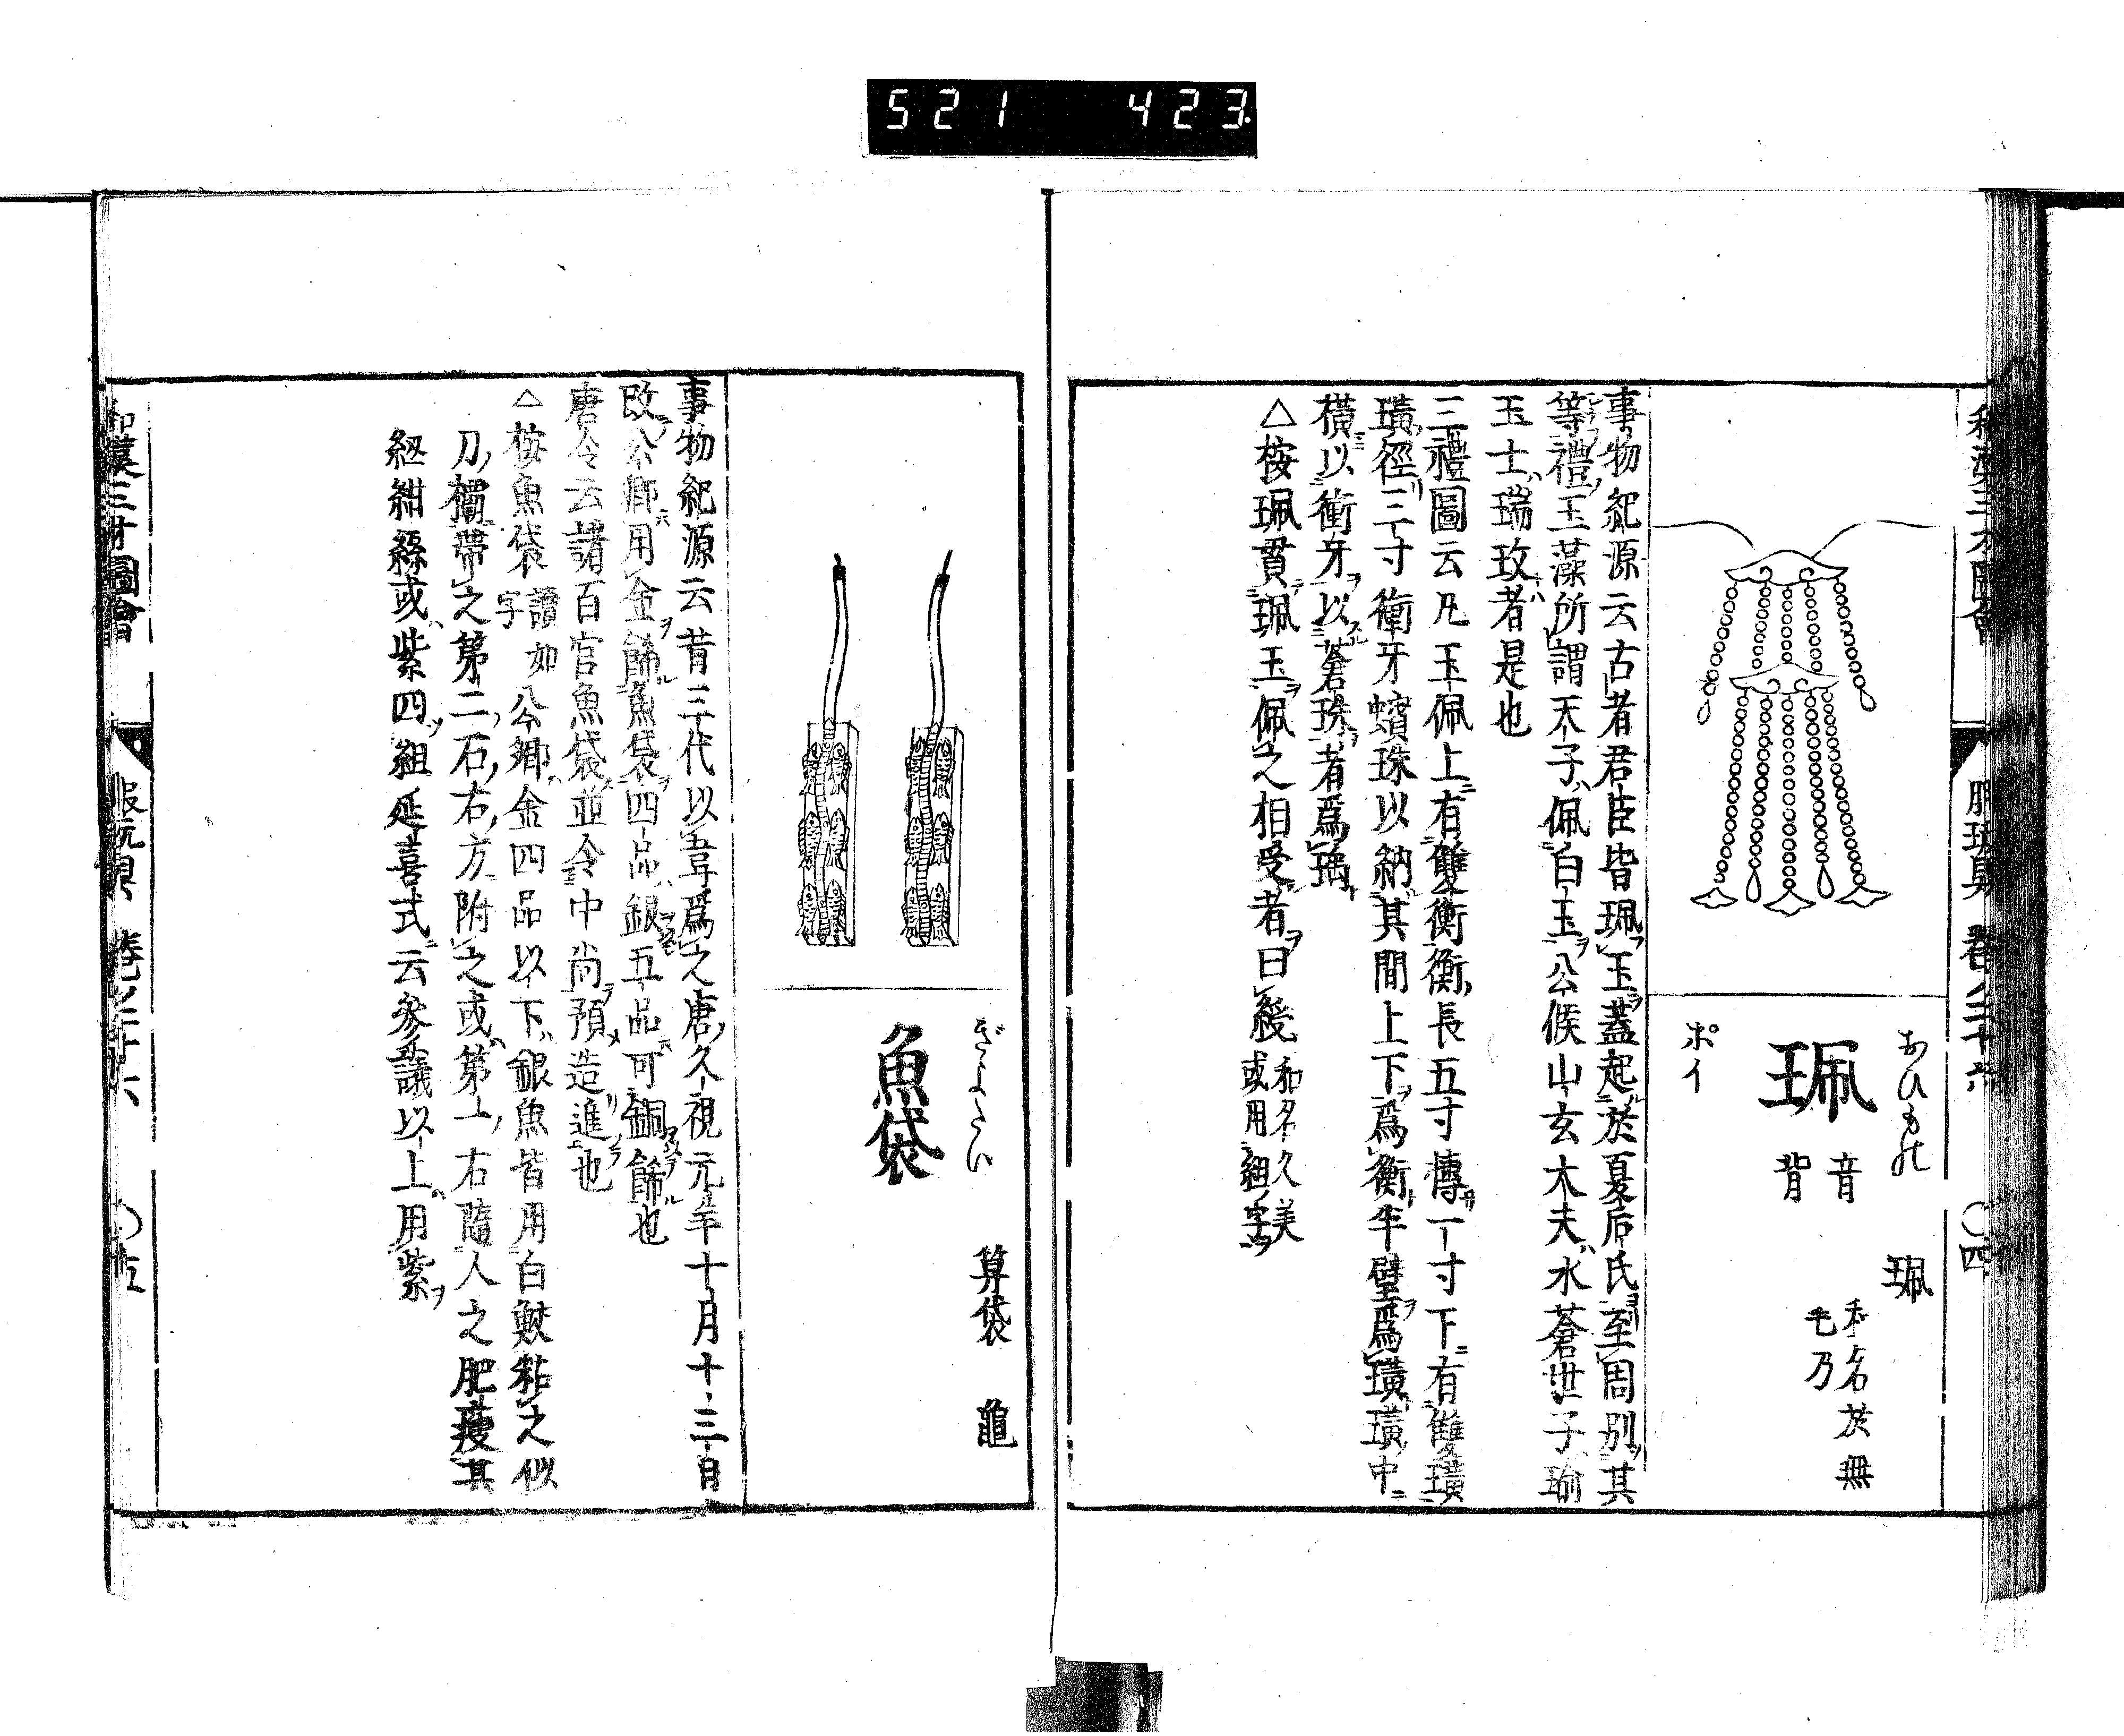 521 423.
和漢三才圖會 服玩具 卷之二十六 〇四
おひもの
珮
音背
ポイ
珮
和名於無毛乃
事物紀源云古者君臣皆珮玉蓋起於夏后氏至周別其
等禮玉藻所謂天子佩白玉公侯山玄大夫水蒼世子瑜
玉士瑞玟者是也
三禮圖云凡玉佩上有雙衡衡長五寸博一寸下有雙璜
璜徑三寸衝牙蠙珠以納其間上下爲衡半璧爲璜璜中
橫以衝牙以蒼珠者爲瑀
△按珮貫珮玉佩之相受者曰綬和名久美或用組字
ぎよたい
魚袋
算袋 龜
事物紀源云昔三代以韋爲之唐久視元年十月十三日
改公卿用金餙魚袋四品銀五品可銅餙也
唐令云諸百官魚袋並令中尚預造進也
△按魚袋讀如字公卿金四品以下銀魚皆用白鮫粘之似
刀欛帶之第二石右方附之或第一右隨人之肥瘦其
紐紺絲或紫四組延喜式云參議以上用紫
和漢三才圖會 服玩具 卷之二十六